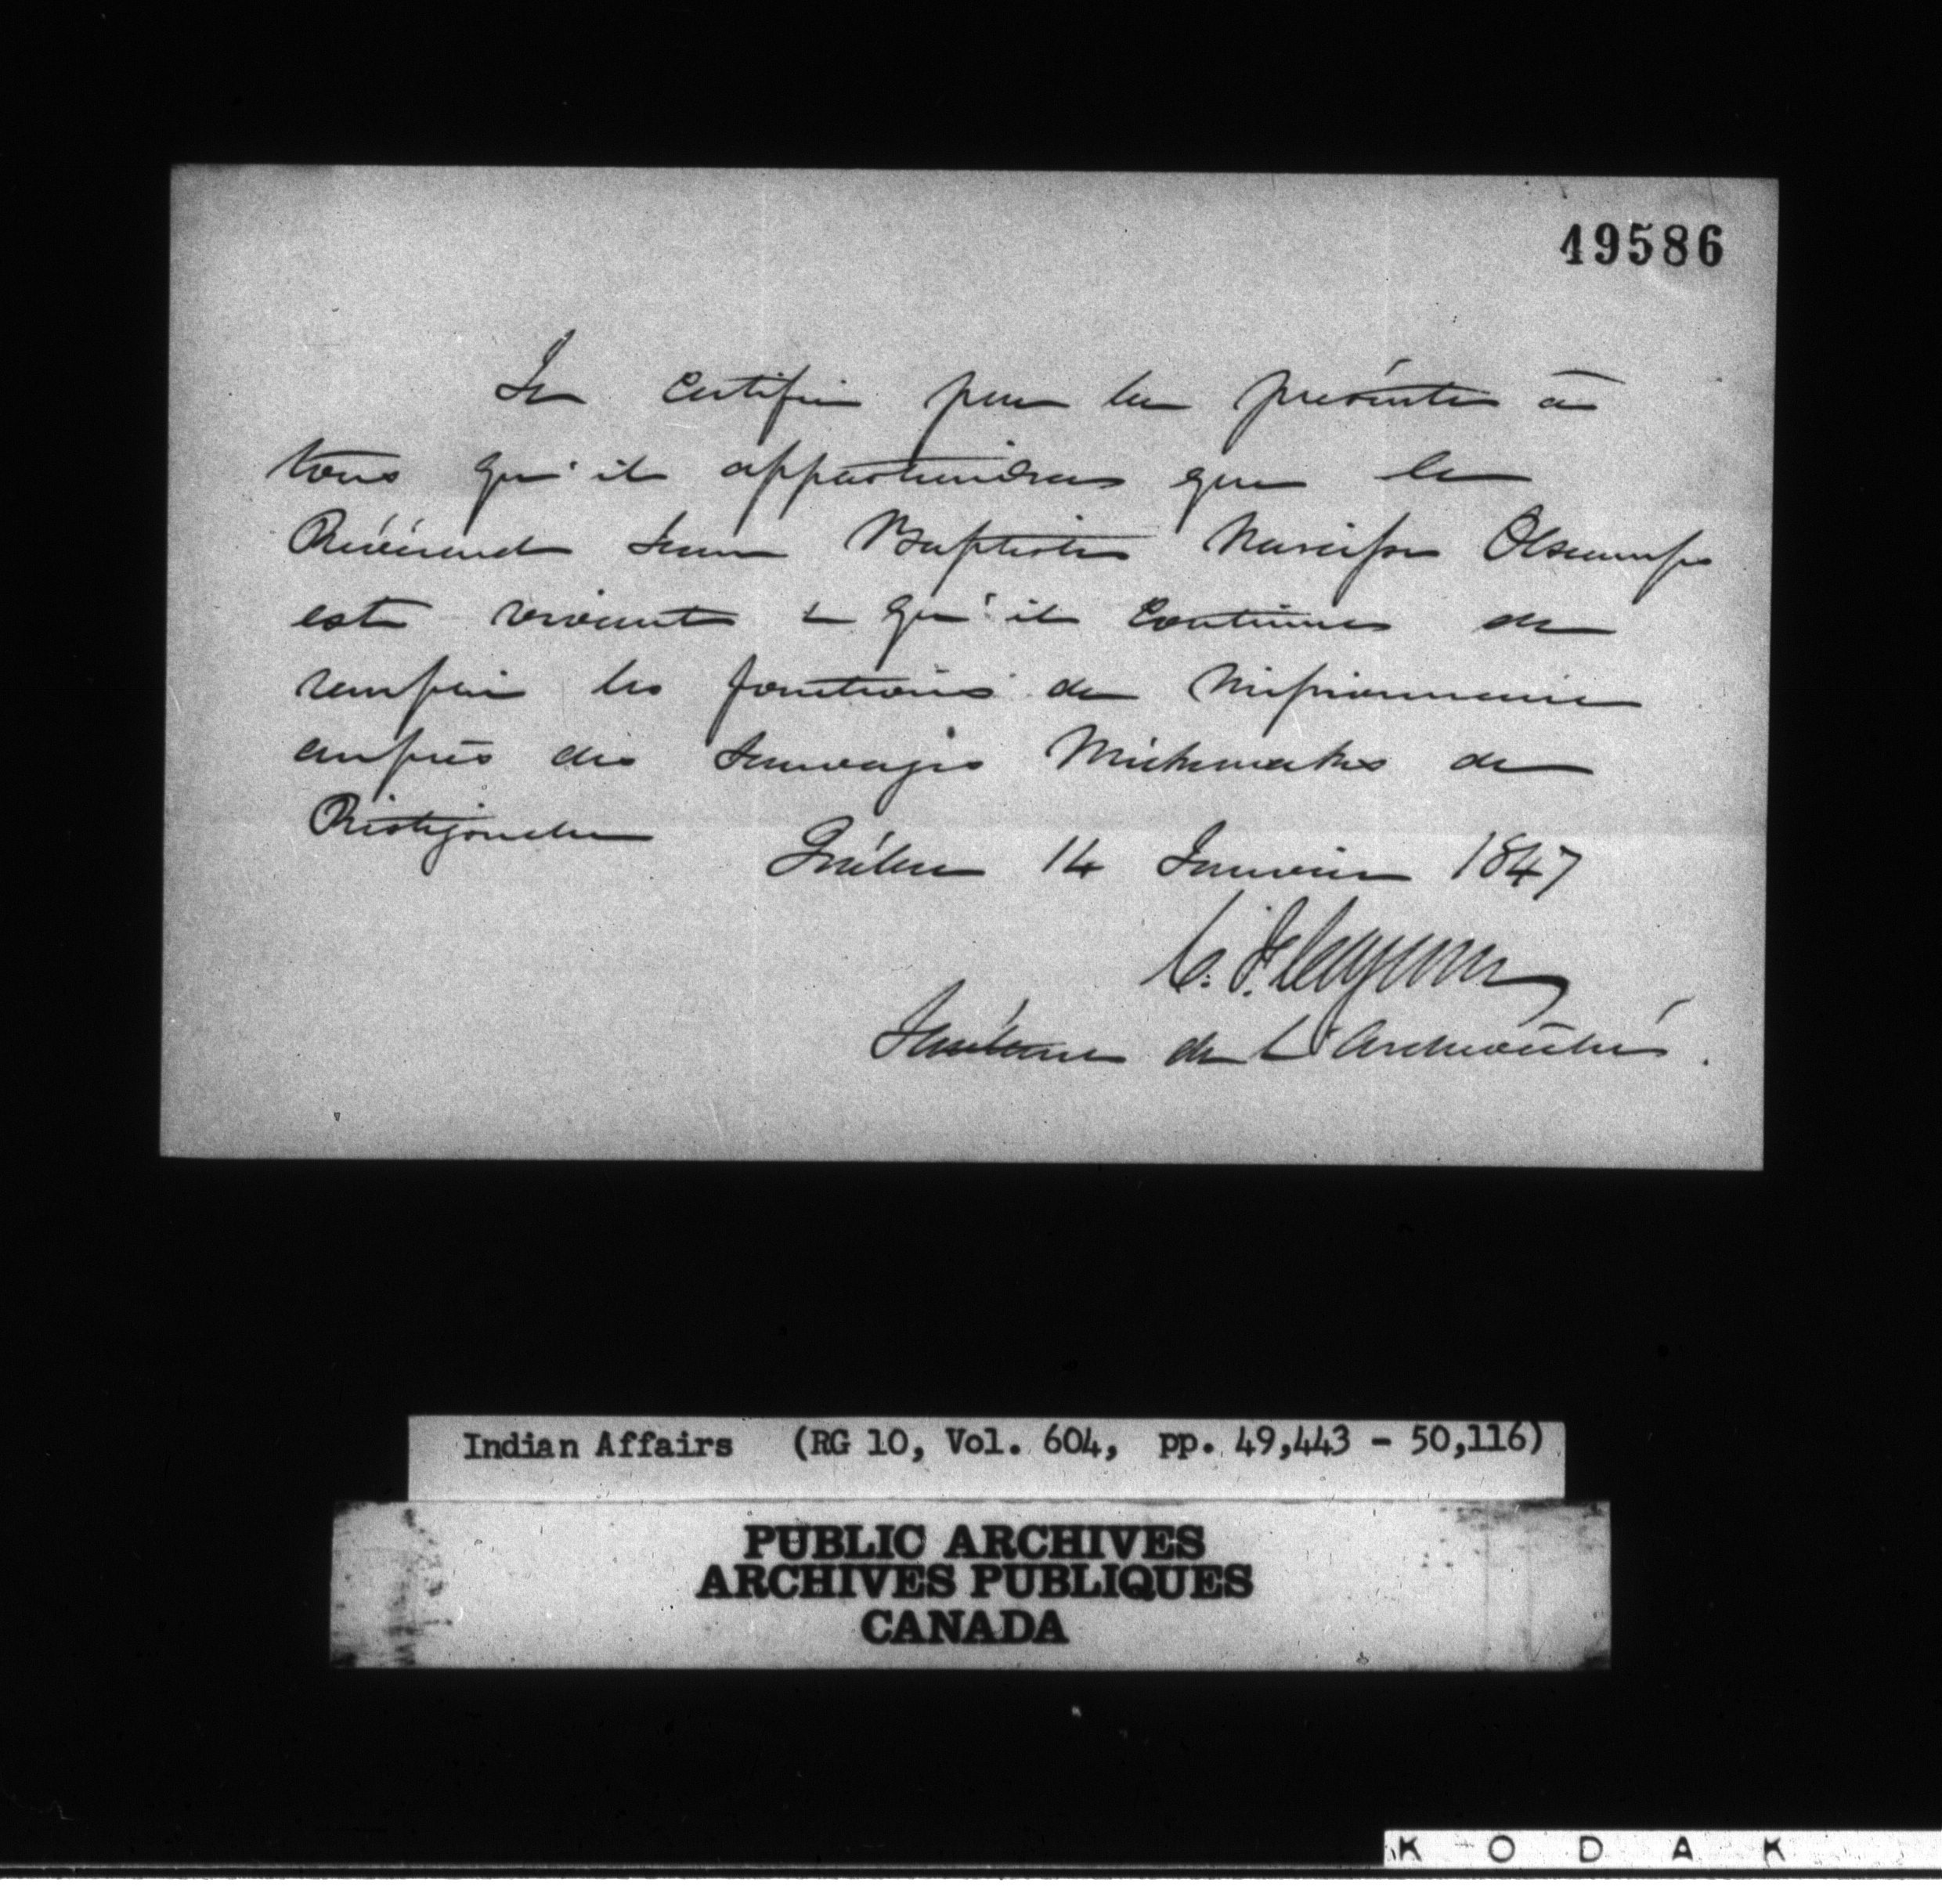 49586
Je certifie par les présentes à
tous qu'il appartiendra que le
Révérend Jean Baptiste Narcisse Olscamps
est vivant & qu'il continue de
remplir les fonctions de Missionnaire
auprès des Sauvages Mickmaks de
Ristigouche
Québec 14 Janvier 1847
C. F. Cazeau
Secrétaire de L'Archevêché.
Indian Affairs (RG 10, Vol. 604, pp. 49,443 - 50,116)
PUBLIC ARCHIVES
ARCHIVES PUBLIQUES
CANADA
KODAK